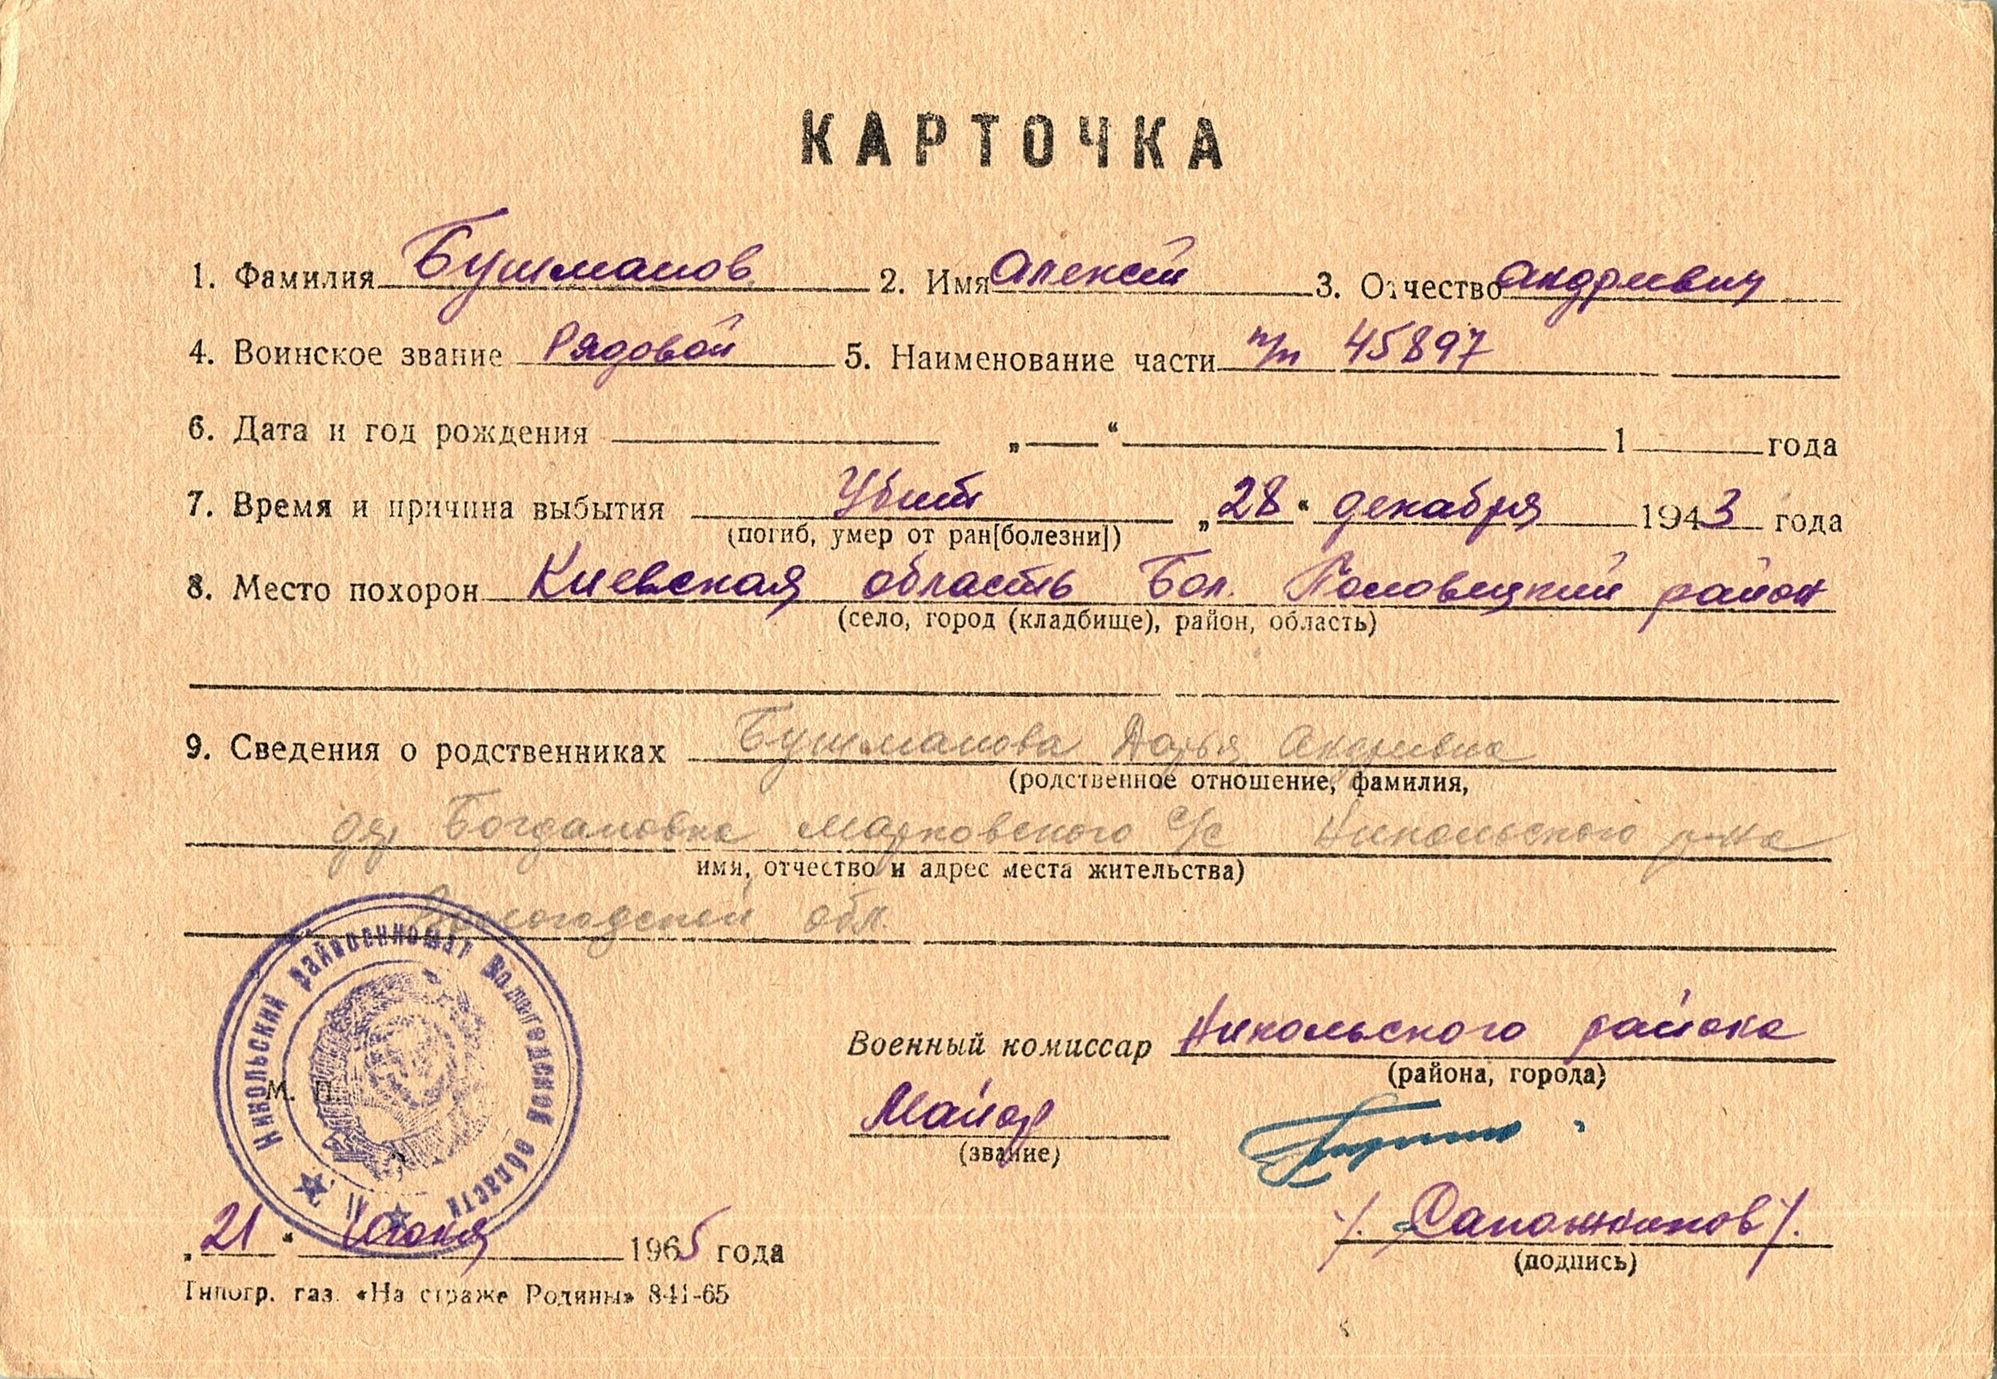 КАРТОЧКА
1. Фамилия Бушманов 2. Имя Алексей 3. Отчество Андреевич
4. Воинское звание Рядовой 5. Наименование части п/п 45897
6. Дата и год рождения „ “ 1 года
7. Время и причина выбытия Убит „28“ декабря 1943 года
(погиб, умер от ран[болезни])
8. Место похорон Киевская область Бол. Половецкий район
(село, город (кладбище), район, область)
9. Сведения о родственниках Бушманова Дарья Андревна
(родственное отношение, фамилия,
дер Богдановка Марковского с/с Никольского р-на
имя, отчество и адрес места жительства)
Вологодской обл.
Никольский райвоенкомат Вологодской области
М. П.
Военный комиссар Никольского района
(района, города)
Майор
(звание)
/. Сапожников/.
(подпись)
„21“ Июня 1965 года
Типогр. газ. «На страже Родины» 841-65